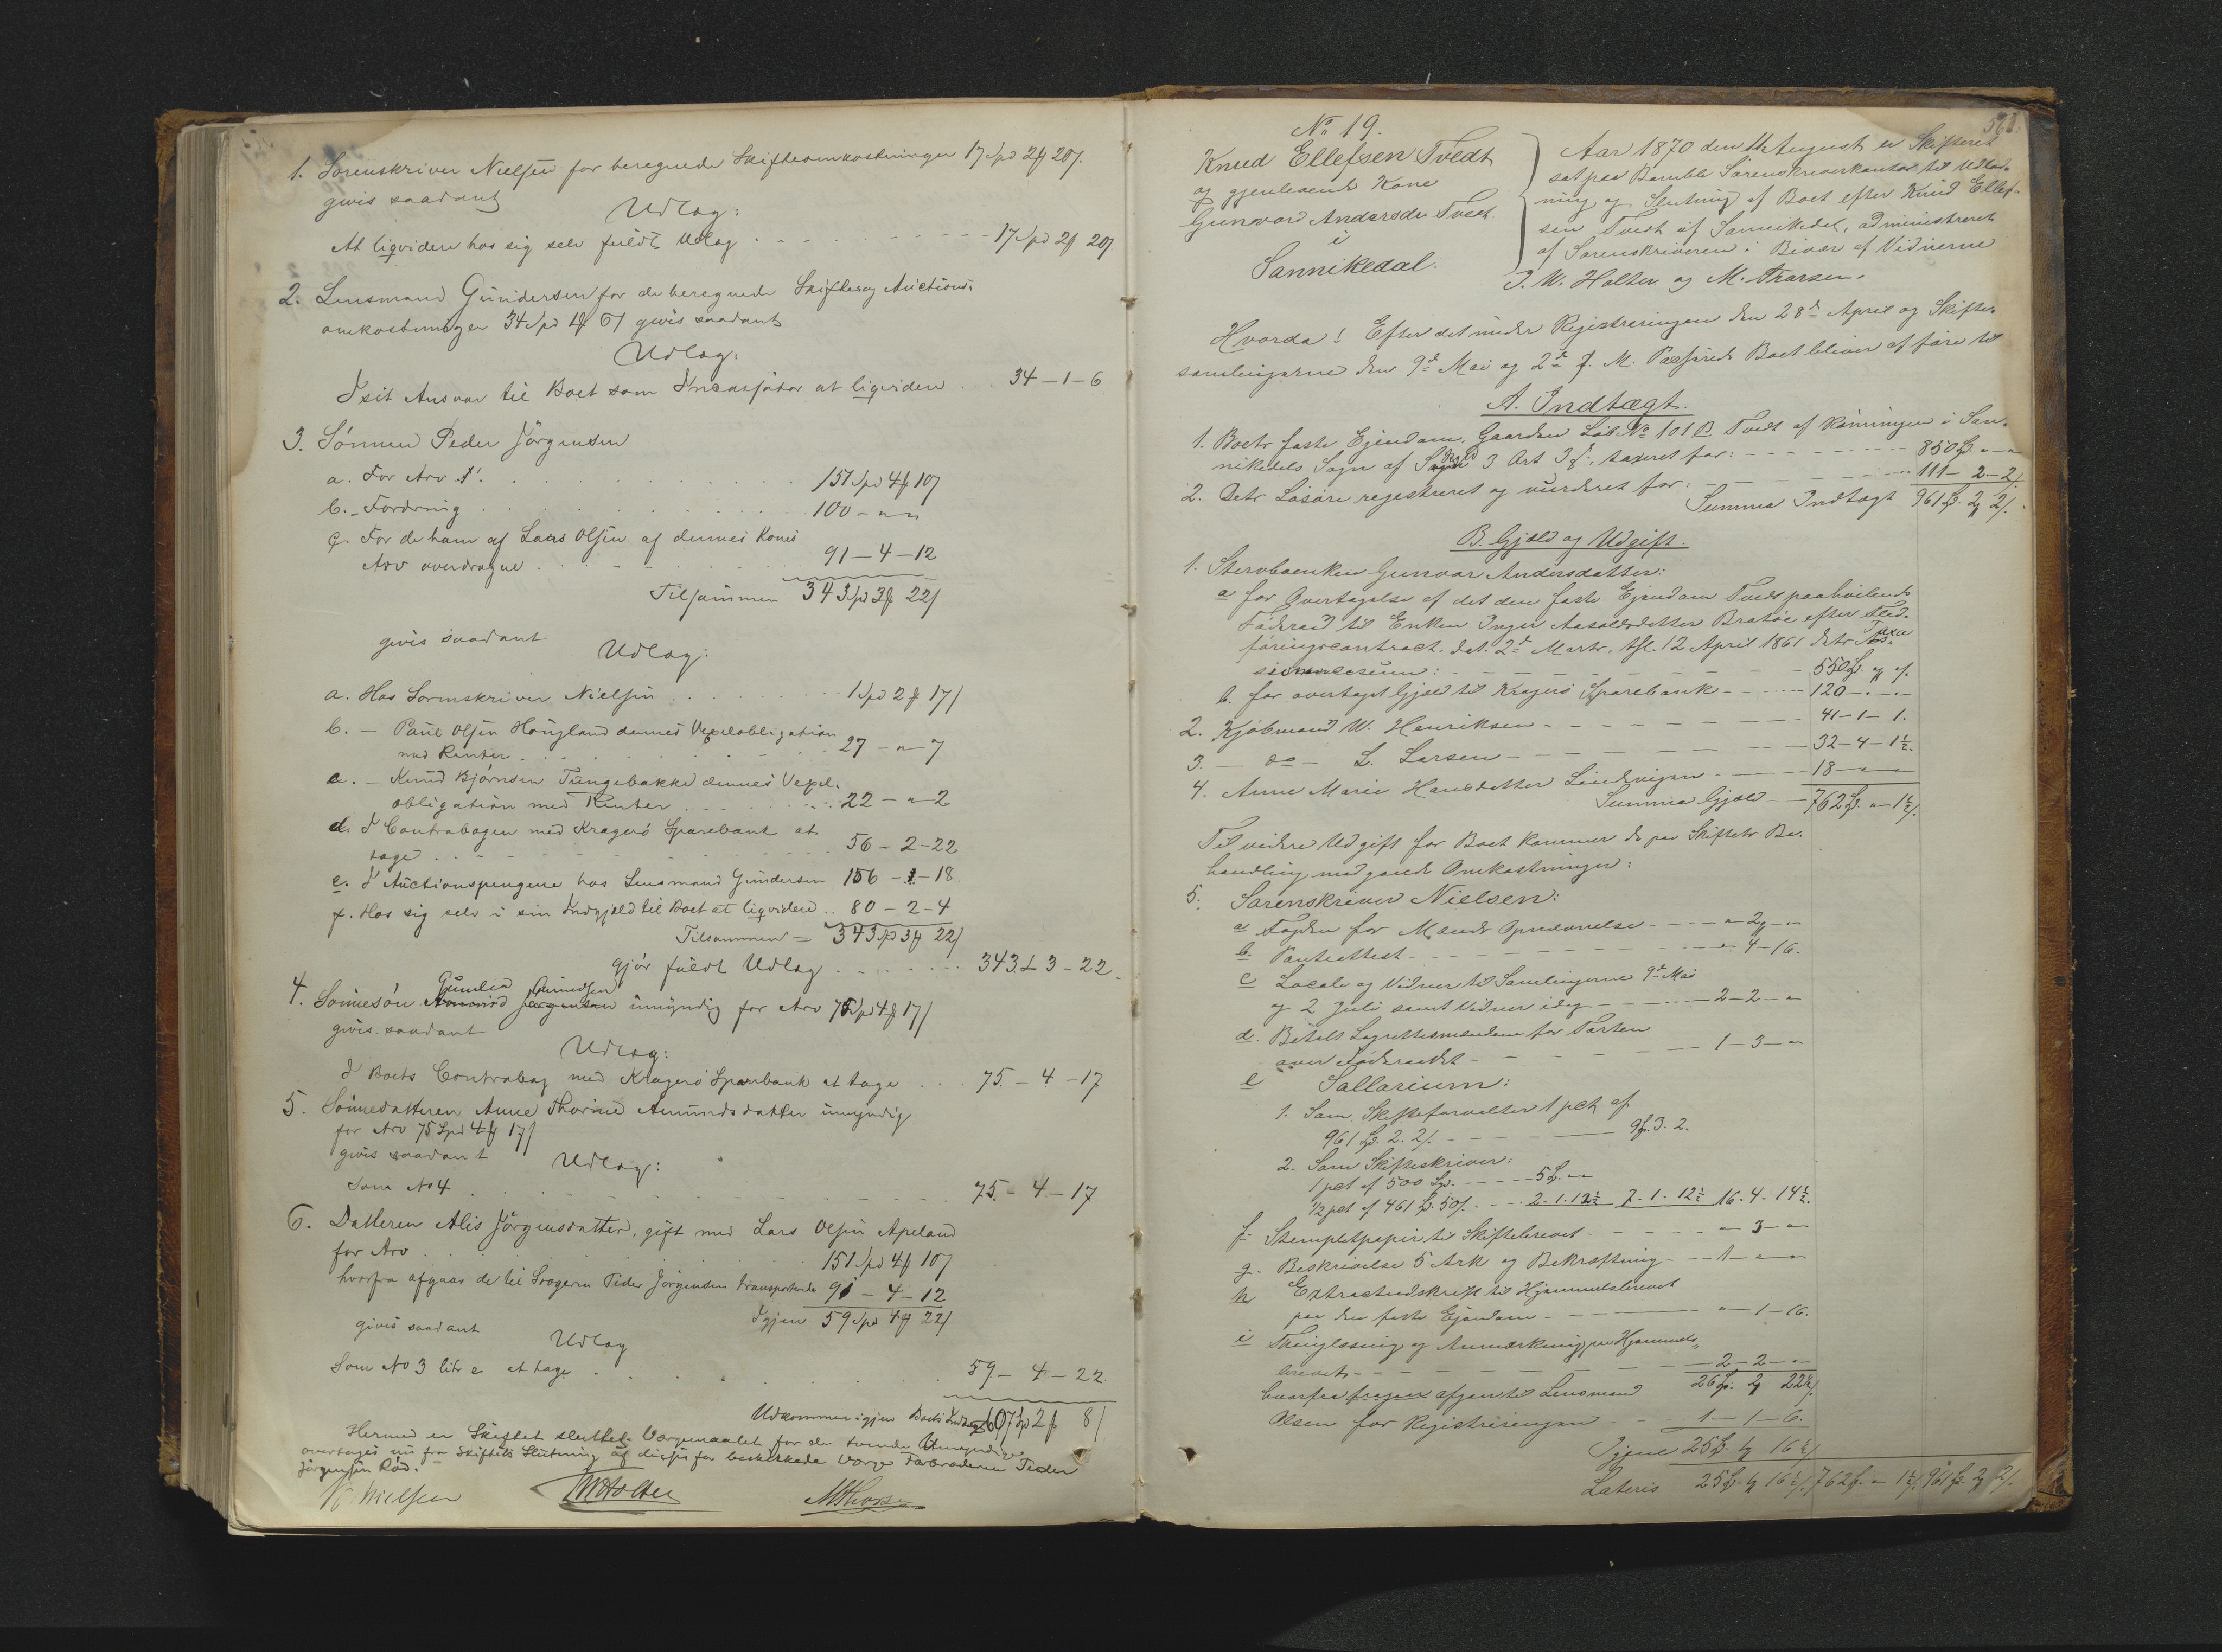 1. Sorenskriver Nielsen for beregnede Skifteomkostninger 17 Spd 2 ₰ 20 /.
givis saadant
Udlæg:
At liqvidere hos sig selv fuldt Udlæg . . . 17 Spd 2 ₰ 20 /.
2. Lensmand Gundersen for de beregnede Skifte og Auctions-
omkostninger 34 Spd 1 ₰ 6 / givis saadant
Udlæg:
I sit Ansvar til Boet som Incassator at liqvidere . . . 34 – 1 – 6
3. Sønnen Peder Jörgensen
a. For Arv . . . 151 Spd 4 ₰ 10 /
b. – Fordring . . . 100 – " – "
c. For de ham af Lars Olsen af dennes Kones
Arv overdragne . . . 91 – 4 – 12
Tilsammen 343 Spd 3 ₰ 22 /
givis saadant
Udlæg:
a. Hos Sorenskriver Nielsen . . . 1 Spd 2 ₰ 17 /
b. – Paul Olsen Hougland dennes Vexelobligation
med Renter . . . 27 – " – 7
c. – Knud Björnsen Tungebakke dennes Vexel-
obligation med Renter . . . 22 – " – 2
d. I Contrabogen med Kragerö Sparebank at
tage . . . 56 – 2 – 22
e. I Auctionspengene hos Lensmand Gundersen 156 – 1 – 18
f. Hos sig selv i sin Indgjæld til Boet at liqvidere . . 80 – 2 – 4
Tilsammen = 343 Spd 3 ₰ 22 /
gjör fuldt Udlæg . . . 343 – 3 – 22
Gunleo Amundsen
4. Sønnesøn Jørgensen umyndig for Arv 75 Spd 4 ₰ 17 /
givis saadant
Udlæg:
I Boets Contrabog med Kragerö Sparebank at tage . . 75 – 4 – 17
5. Sønnedatteren Anne Thorine Amundsdatter umyndig
for Arv 75 Spd 4 ₰ 17 /
givis saadant
Udlæg:
Som No 4 . . . 75 – 4 – 17
6. Datteren Alis Jörgensdatter, gift med Lars Olsen Apeland
for Arv . . . 151 Spd 4 ₰ 10 /
hvorfra afgaar de til Svogeren Peder Jørgensen transporterede 91 – 4 – 12
Igjen 59 Spd 4 ₰ 22 /
givis saadant
Udlæg
Som No 3 litr e at tage . . . 59 – 4 – 22
Udkommer igjen Boets Indtægt 607 Spd 2 ₰ 8 /
Hermed er Skiftet sluttet. Værgemaalet for de tvende Umyndige
overtages nu fra Skiftets Slutning af disses for beskikkede Værge Farbroderen Peder
Jörgensen Röd.
Nielsen MHolter MThorsen
562.
No 19.
Knud Ellefsen Tvedt
og gjenlevende Kone
Gunvor Andersdr Tvedt
i
Sannikedal.
Aar 1870 den 11 August er Skifteret
sat paa Bamble Sorenskriverkontor til Udlæg-
ning og Slutning af Boet efter Knud Ellef-
sen Tvedt af Sannikedal, administreret
af Sorenskriveren i Bivær af Vidnerne
J. M. Holter og M. Thorsen.
Hvorda! Efter det under Registreringen den 28de April og Skifte-
samlingerne den 9de Mai og 2de f. M. Passerede Boet bliver at före til
A. Indtægt.
1. Boets faste Ejendom, Gaarden Løb No 101 B Tvedt af Rönningen i San-
nikedals Sogn af Skyld 3 Ort 3 ₰, taxeret for: – – – 850 Sp. " – "
2. Dets Lösöre registreret og vurderet for: – – – 111 – 2 – 2 /
Summa Indtægt 961 Sp. 2 ₰ 2 /.
B. Gjæld og Udgift.
1. Stervboenken Gunvor Andersdatter:
a for Overtagelse af det den faste Ejendom Tvedt paahvilende
Föderaad til Enken Inger Aasoldsdatter Bratöe efter Flæd-
føringscontract. dat. 2de Marts, tgl. 12 April 1861 dets Taxa
tionssum: – – – 550 Sp. " ₰ " /.
b. for overtaget Gjæld til Kragerö Sparebank – – – 120 – " – "
2. Kjöbmand W. Henriksen – – – 41 – 1 – 1.
3. – do – L. Larsen – – – 32 – 4 – 1½.
4. Anne Marie Hansdatter Lindvigen – – – 18 – " – "
Summa Gjæld – – 762 Sp. " – 1½ /.
Til videre Udgift for Boet kommer de paa Skiftets Be-
handling medgaaede Omkostninger:
5. Sorenskriver Nielsen:
a Fogden for Mænds Opnævnelse – – – " – 2 – "
b. Panteattest – – – " – 4 – 16.
c Locale og Vidner til Samlingerne 9de Mai
og 2 Juli samt Vidner idag – – – 2 – 2 – "
d. Betalt Lagrettesmændene for Taxten
over Föderaadet – – – 1 – 3 – "
e Sallarium:
1. Som Skifteforvalter 1 pct af
961 Sp. 2. 2 /. – – – 9 Sp. 3. 2.
2. Som Skifteskriver:
1 pct af 500 Sp. – – – 5 Sp. " – "
½ pct af 461 Sp. 50 /. – – 2 . 1 . 12½ 7 . 1 . 12½ 16 . 4 . 14½.
f. Stemplet papir til Skiftebrevet – – – " – 3 – "
g. Beskrivelse 5 Ark og Bekræftning – – 1 – " – "
h Extractudskrift til Hjemmelsbrevet
paa den faste Ejendom – – – " – 1 – 16.
i Thinglæsning og Anmærkning paa Hjemmels-
brevet – – – 2 – 2 – "
hvorfra afgaar til Lensmand 26 Sp. 2 ₰ 22½ /
Olsen for Registreringen . . . 1 – 1 – 6.
Igjen 25 Sp. 1 ₰ 16½ /
Lateris 25 Sp. 1 ₰ 16½ /. 762 Sp. " – 1½ /. 961 Sp. 2 ₰ 2 /.